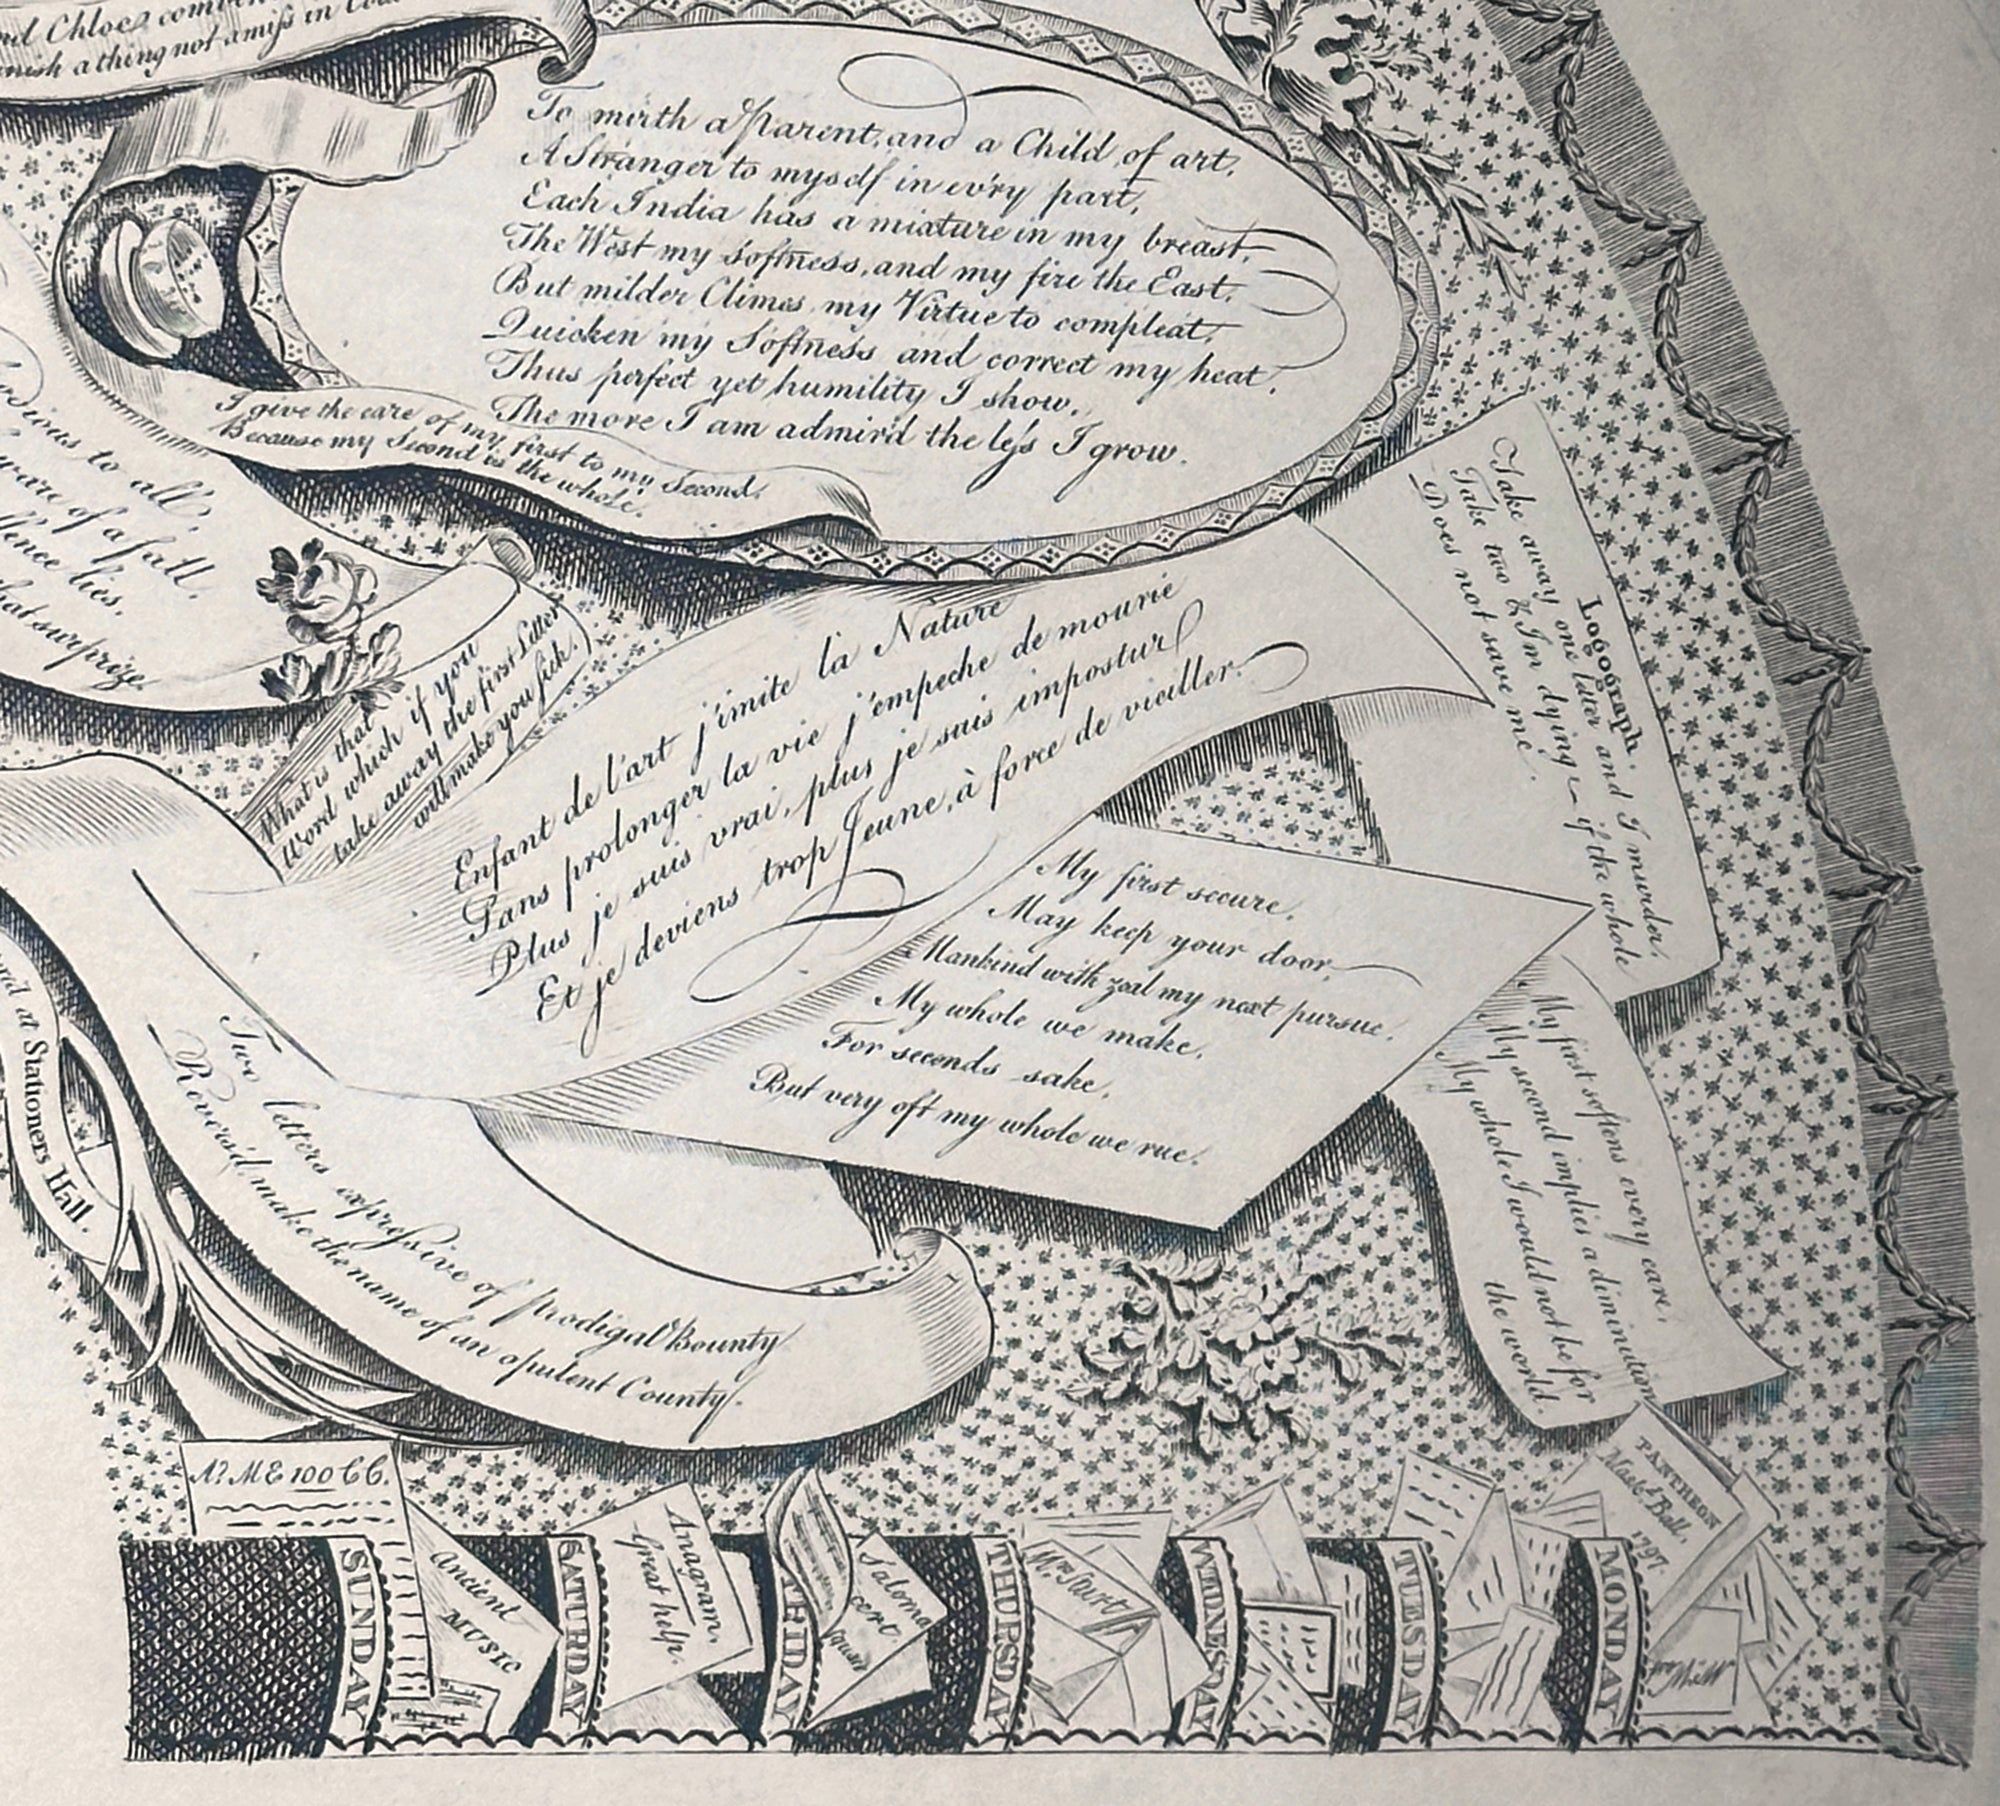 nd Chloe
a thing not amiss in
To mirth a Parent, and a Child of art,
A Stranger to myself in ev'ry part,
Each India has a mixture in my breast,
The West my softness, and my fire the East,
But milder Climes, my Virtue to compleat,
Quicken my Softness and correct my heat,
Thus perfect yet humility I show,
The more I am admir'd the leſs I grow.
I give the care of my first to my Second,
Because my Second is the whole.
to all,
ware of a fall
lies,
hat surprize
What is that
Word which if you
take away the first Letter
will make you sick.
Logograph.
Take away one letter and I murder,
Take two & I'm dying — if the whole
Does not save me.
Enfant de l'art j'imite la Nature
Sans prolonger la vie j'empeche de mourir
Plus je suis vrai, plus je suis impostur
Et je deviens trop Jeune, à force de vieiller.
My first secure,
May keep your door,
Mankind with zeal my next pursue,
My whole we make,
For seconds sake,
But very oft my whole we rue.
My first softens every care,
My second implies a diminution
My whole I would not be for
the world
at Stationers Hall.
Two letters expreſsive of prodigal Bounty
Revers'd, make the name of an opulent County.
No. ME 100 CC.
SUNDAY
Ancient
MUSIC
SATURDAY
Anagram.
Great help.
Saloma
cert
THURSDAY
Mrs. Sturt
WEDNESDAY
TUESDAY
MONDAY
PANTHEON
Masd. Ball.
1797